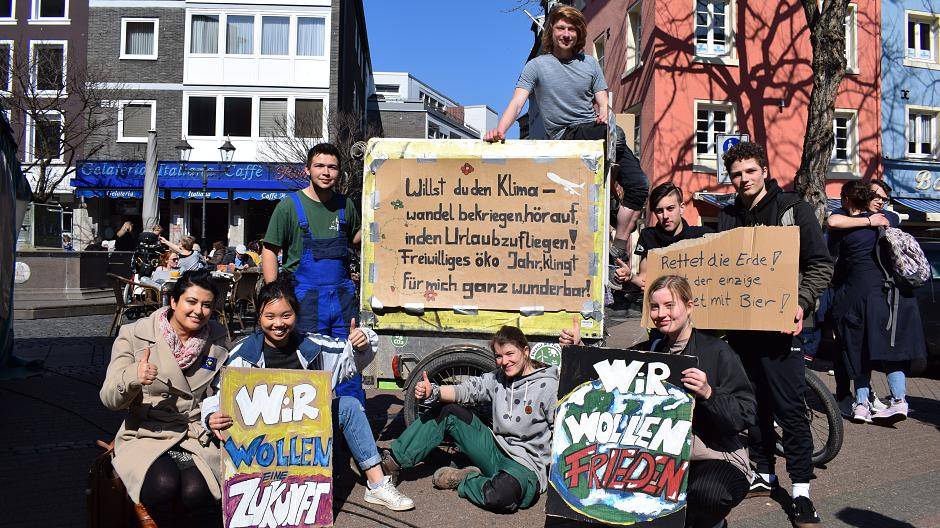 Gelateria Italiana Caffe
Gelateria
Caffe
Willst du den Klima-
wandel bekriegen, hör auf
in den Urlaub zu fliegen!
Freiwilliges öko Jahr, klingt
für mich ganz wunderbar!
Rettet die Erde!
der einzige
et mit Bier!
WiR
WOLLEN
EINE
ZUKUNFT
WiR
WOLLEN
FRiEDEN